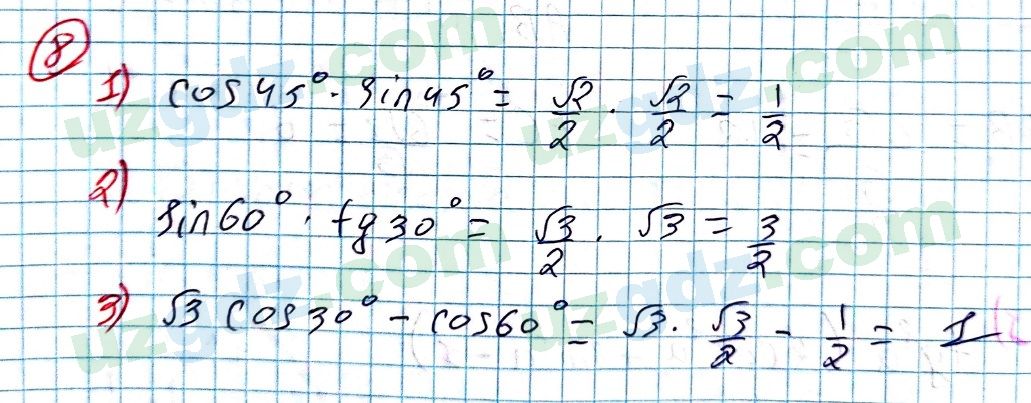 8
1) cos 45° · sin 45° = √2/2 · √2/2 = 1/2
2) sin 60° · tg 30° = √3/2 · √3 = 3/2
3) √3 cos 30° - cos 60° = √3 · √3/2 - 1/2 = 1
uzgdz.com uzgdz.com
uzgdz.com uzgdz.com